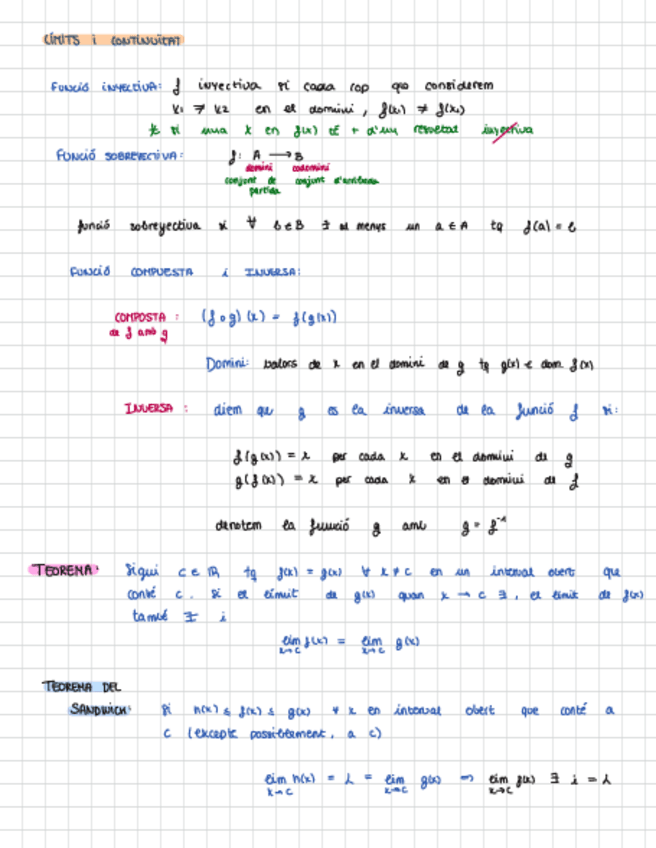 LÍMITS i CONTINUÏTAT
FUNCIÓ INYECTIVA: f inyectiva si cada cop que considerem
x₁ ≠ x₂ en el domini, f(x₁) ≠ f(x₂)
* si una x en f(x) té + d'un resultat inyectiva
FUNCIÓ SOBREYECTIVA: f: A → B
domini codomini
conjunt de conjunt d'arribada
partida
funció sobreyectiva si ∀ b ∈ B ∃ al menys un a ∈ A tq f(a) = b
FUNCIÓ COMPUESTA i INVERSA:
COMPOSTA: (f o g)(x) = f(g(x))
de f amb g
Domini: valors de x en el domini de g tq g(x) ∈ dom f(x)
INVERSA: diem que g es la inversa de la funció f si:
f(g(x)) = x per cada x en el domini de g
g(f(x)) = x per cada x en el domini de f
denotem la funció g amb g = f⁻¹
TEOREMA: Sigui c ∈ ℝ tq f(x) = g(x) ∀ x ≠ c en un interval obert que
conté c. Si el límit de g(x) quan x → c ∃, el límit de f(x)
també ∃ i
lim x→c f(x) = lim x→c g(x)
TEOREMA DEL
SANDWICH: Si h(x) ≤ f(x) ≤ g(x) ∀ x en interval obert que conté a
c (excepte possiblement, a c)
lim x→c h(x) = L = lim x→c g(x) ⇒ lim x→c f(x) ∃ i = L